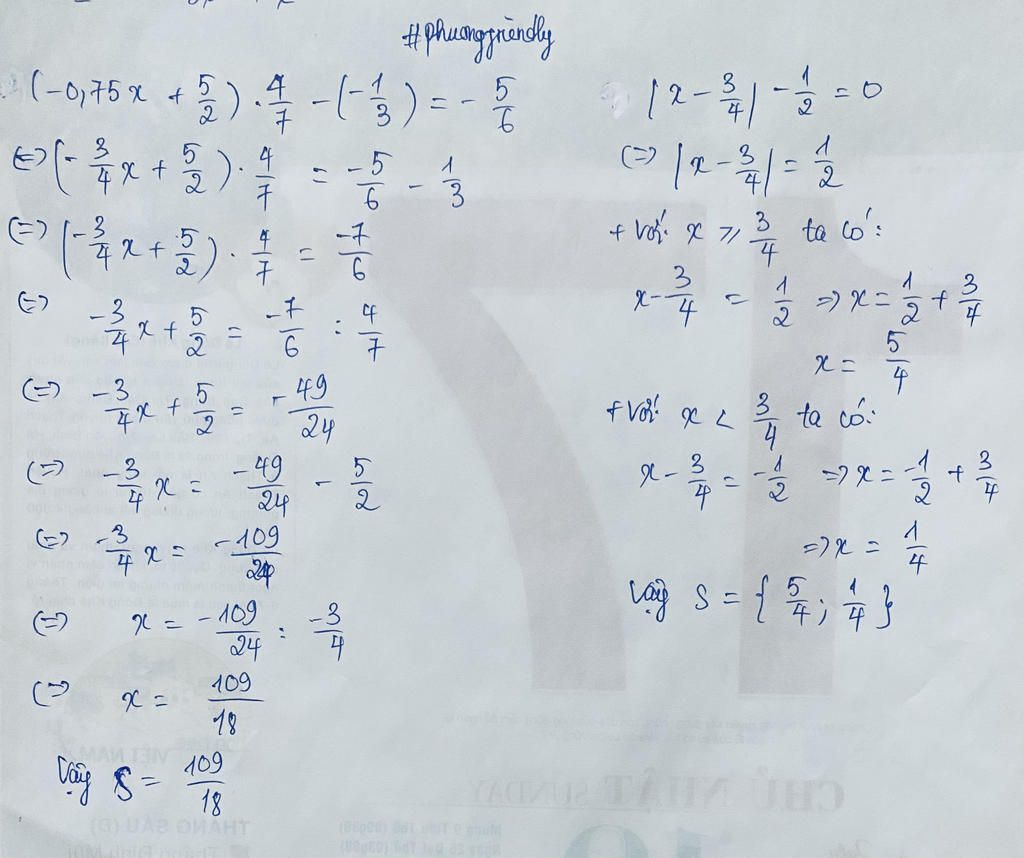 #phuongfriendly
(-0,75x + 5/2) . 4/7 - (-1/3) = - 5/6
<=> (-3/4 x + 5/2) . 4/7 = -5/6 - 1/3
<=> (-3/4 x + 5/2) . 4/7 = -7/6
<=> -3/4 x + 5/2 = -7/6 : 4/7
<=> -3/4 x + 5/2 = -49/24
<=> -3/4 x = -49/24 - 5/2
<=> -3/4 x = -109/24
<=> x = -109/24 : -3/4
<=> x = 109/18
Vậy S = 109/18
|x - 3/4| - 1/2 = 0
<=> |x - 3/4| = 1/2
+ Với x ⩾ 3/4 ta có:
x - 3/4 = 1/2 => x = 1/2 + 3/4
x = 5/4
+ Với x < 3/4 ta có:
x - 3/4 = -1/2 => x = -1/2 + 3/4
=> x = 1/4
Vậy S = { 5/4 ; 1/4 }
CHỦ NHẬT SUNDAY
VIỆT NAM
THÁNG SÁU (Đ)